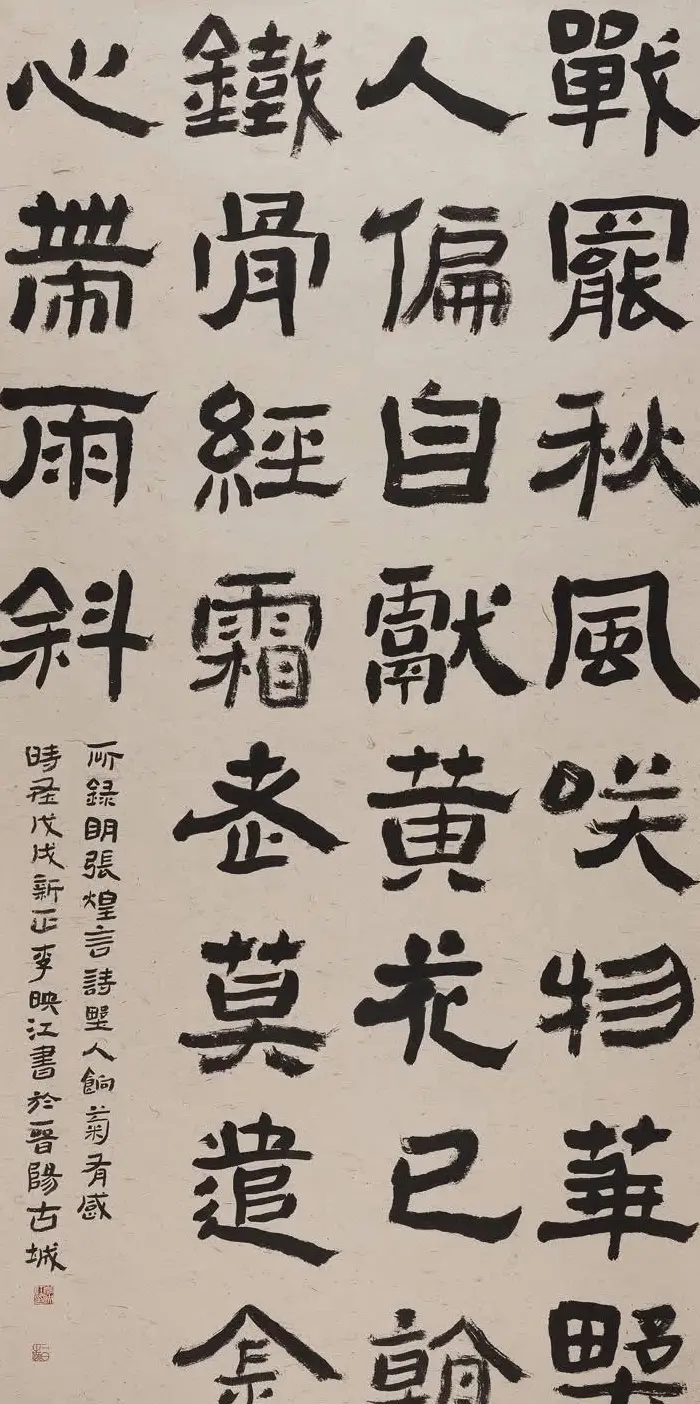 戰罷秋風咲物華野
人偏自獻黃花已看
鐵骨經霜老莫遣金
心帶雨斜
所録明張煌言詩野人餉菊有感
時在戊戌新正李映江書於晉陽古城